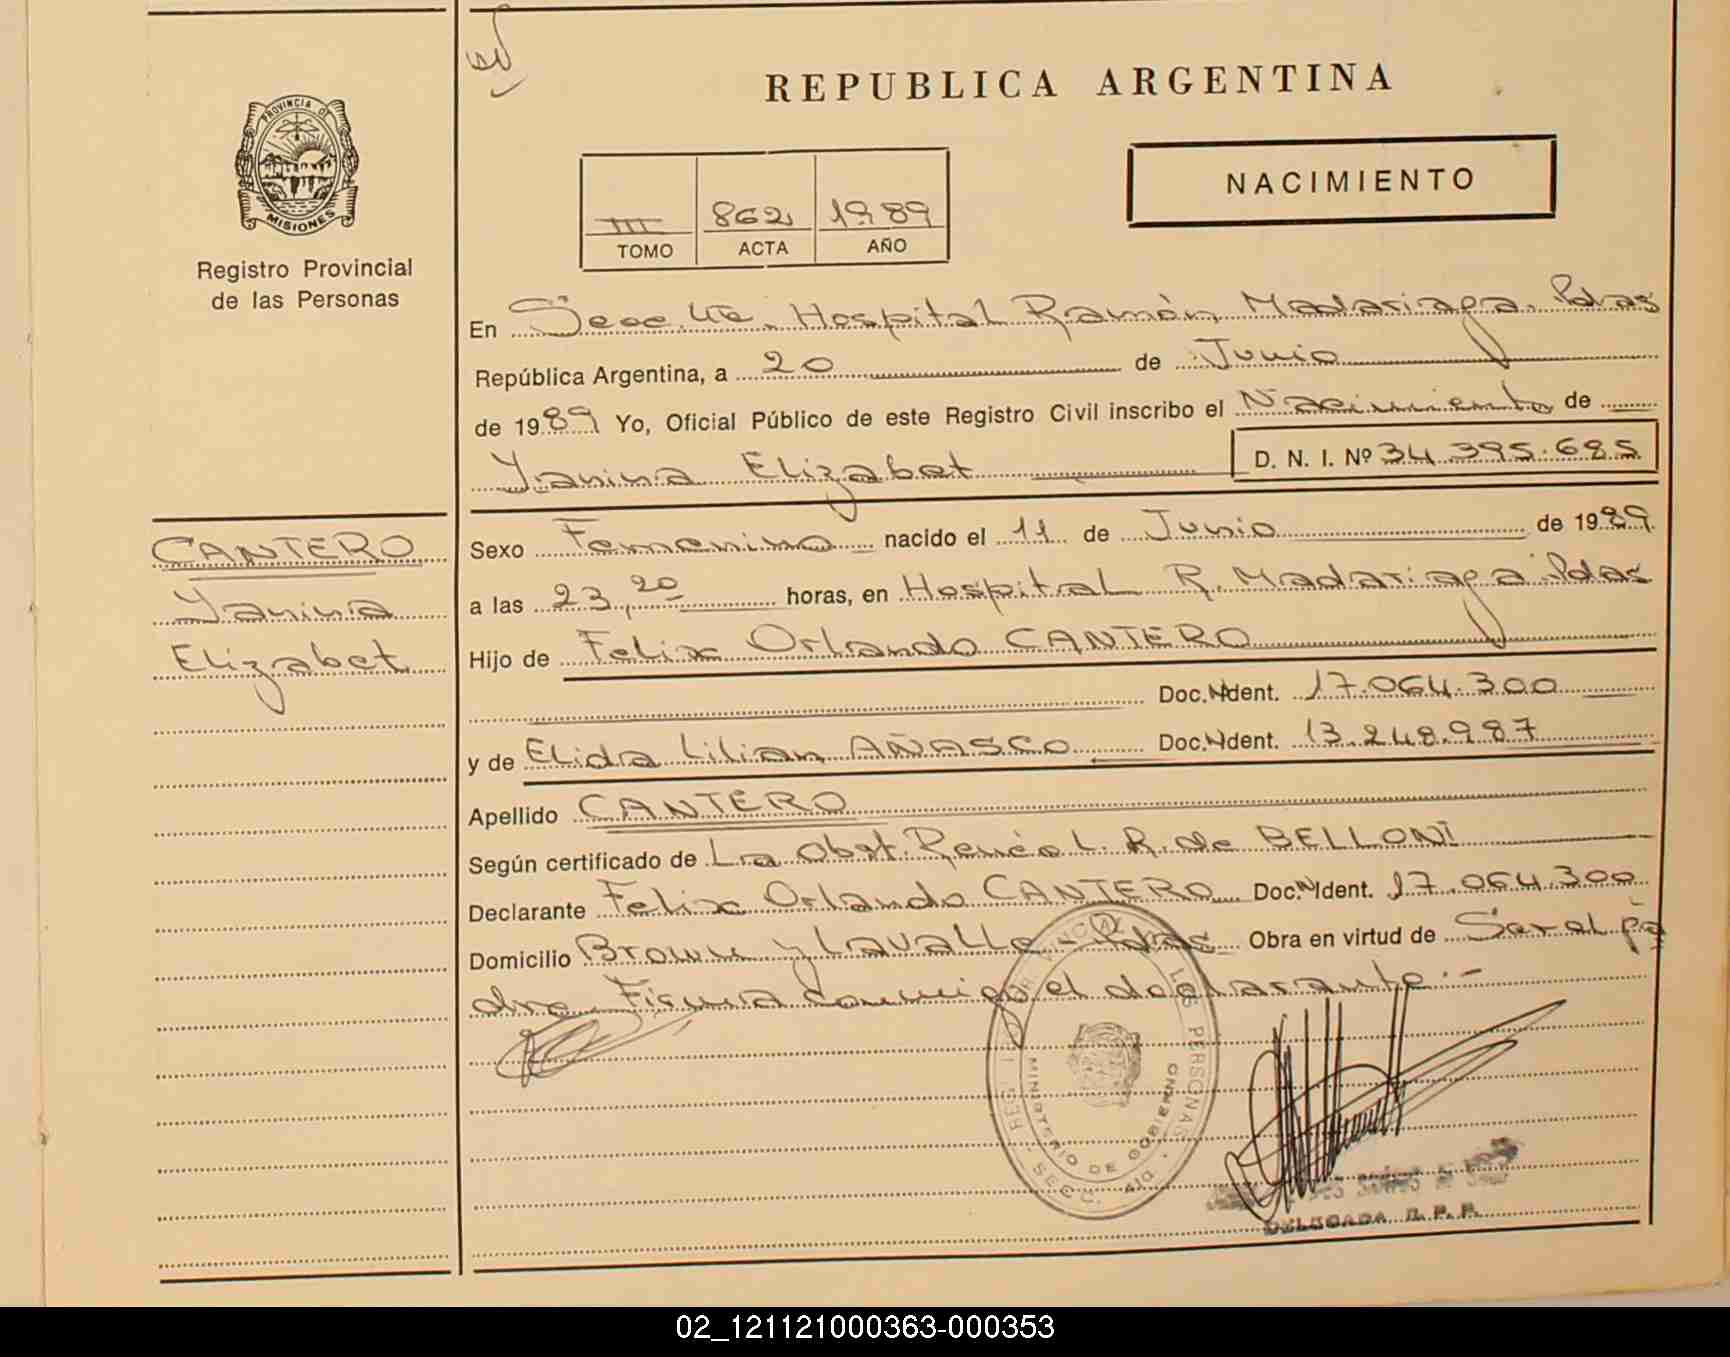 PROVINCIA DE
MISIONES
Registro Provincial
de las Personas
CANTERO
Yanina
Elizabet
REPUBLICA ARGENTINA
NACIMIENTO
III 862 1989
TOMO ACTA AÑO
En Secc. 4ta. Hospital Ramón Madariaga. Pdas
República Argentina, a 20 de Junio
de 1989 Yo, Oficial Público de este Registro Civil inscribo el Nacimiento de
Yanina Elizabet D. N. I. Nº 34.395.685
Sexo Femenino nacido el 11 de Junio de 1989
a las 23,20 horas, en Hospital R. Madariaga Pdas
Hijo de Felix Orlando CANTERO
Doc. Ident. 17.064.300
y de Elida Lilian AÑASCO Doc. Ident. 13.248.987
Apellido CANTERO
Según certificado de La Obst. L. R. de BELLONI
Declarante Felix Orlando CANTERO Doc. Ident. 17.064.300
Domicilio Brown y Lavalle - Pdas Obra en virtud de Ser el pa
dre Firma conmigo el declarante.-
LAS PERSONAS
MINISTERIO DE GOBIERNO
SECC. 4ta
DELEGADA R. P. P.
02_121121000363-000353